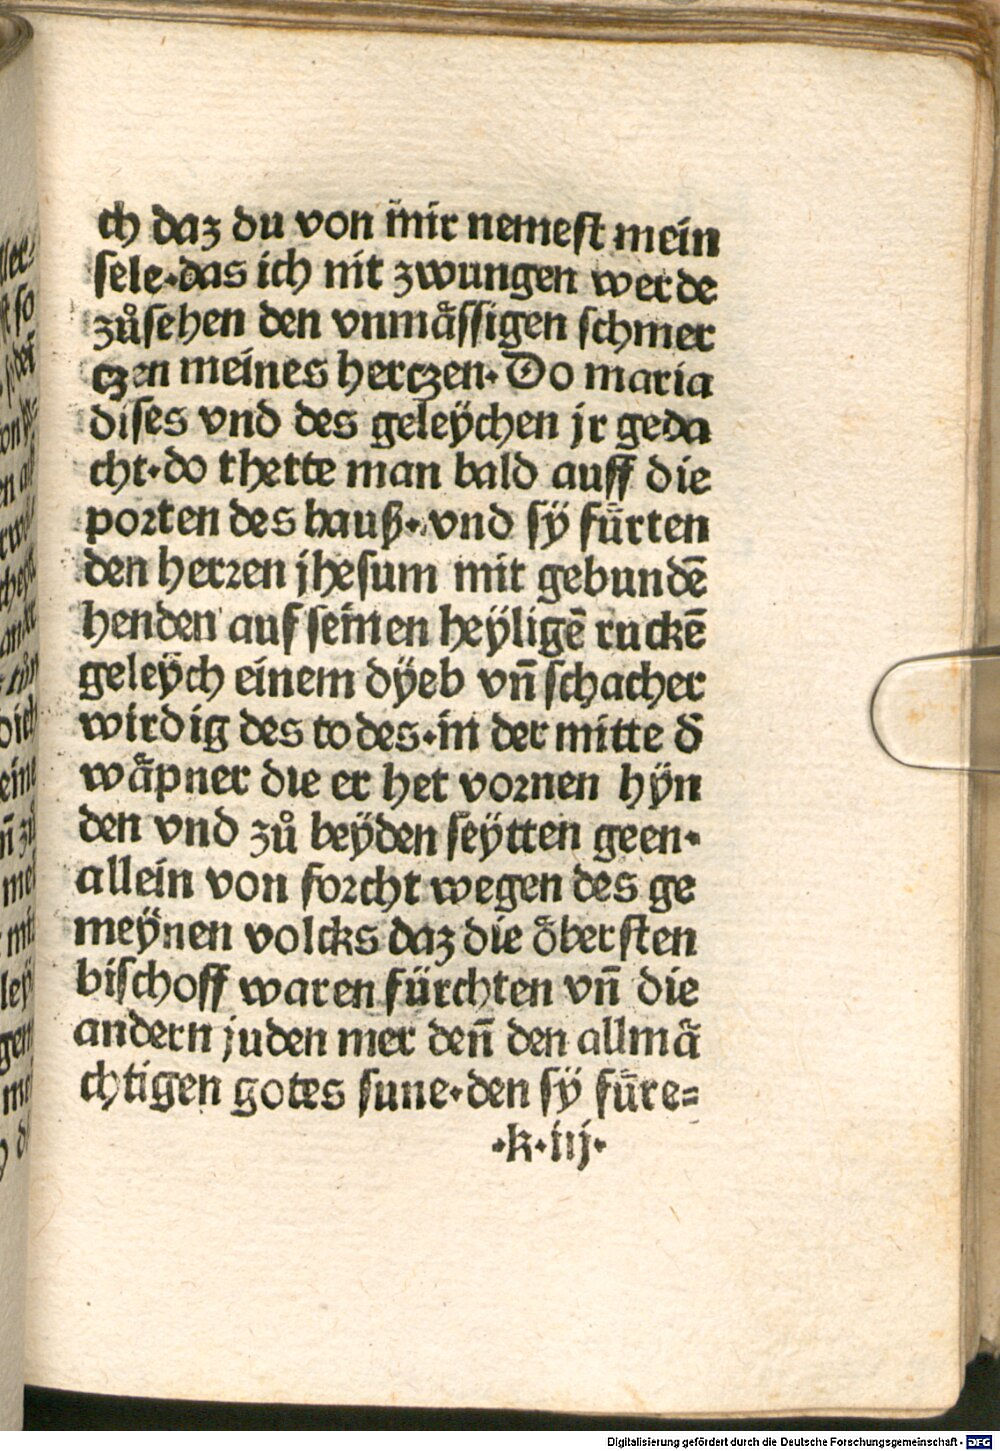 ch daz du von mir nemest mein
sele·das ich nit zwungen werde
zůsehen den vnmaͤssigen schmer
czen meines herczen·Do maria
dises vnd des geleÿchen jr geda
cht·do thette man bald auff die
porten des hauß·vnd sÿ fuͤrten
den herren jhesum mit gebundē
henden auf seinen heÿligē ruckē
geleÿch einem dÿeb vn̄ schacher
wirdig des todes·in der mitte d̄
waͤpner die er het vornen hÿn
den vnd zů beÿden seÿtten geen·
allein von forcht wegen des ge
meÿnen volcks daz die oͤbersten
bischoff waren fürchten vn̄ die
andern juden mer den̄ den allmaͤ
chtigen gotes sune·den sÿ fuͤre=
·k·iij·
Digitalisierung gefördert durch die Deutsche Forschungsgemeinschaft - DFG